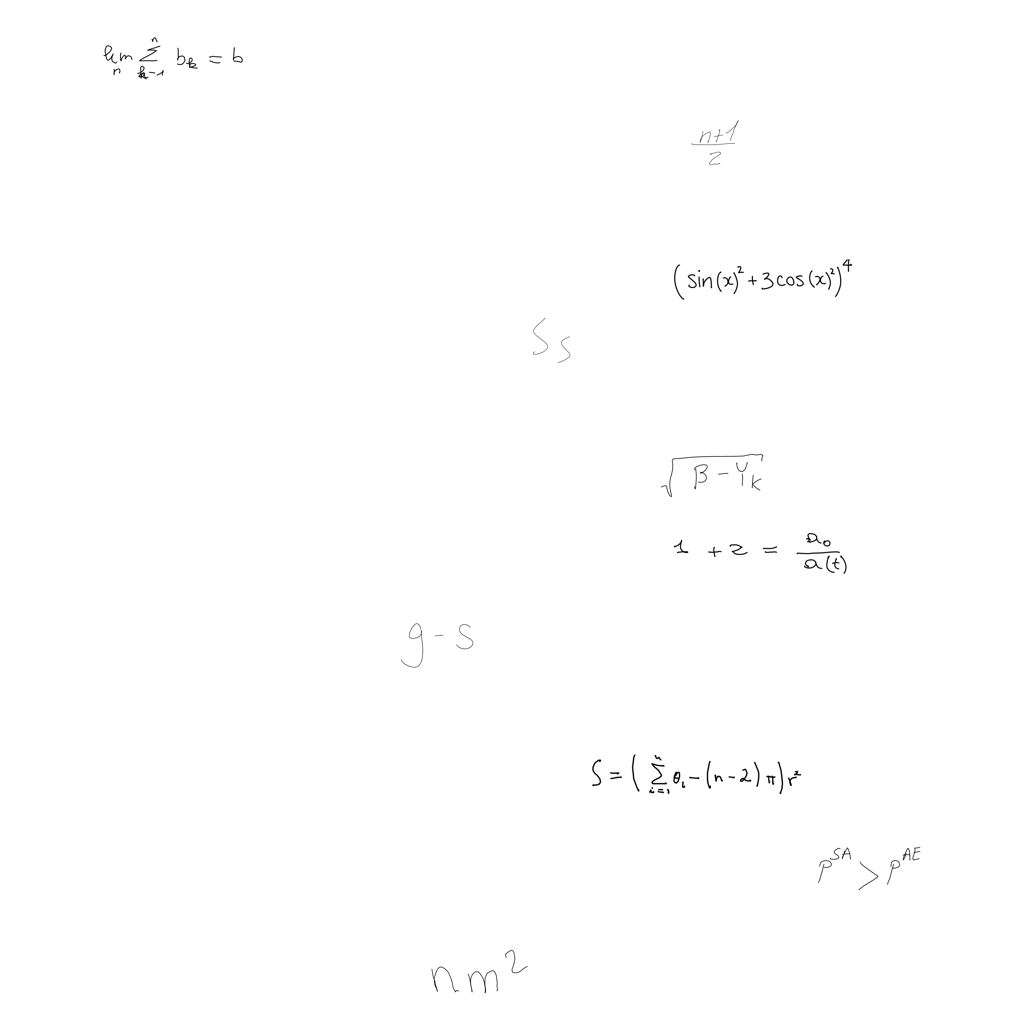 \lim_n \sum_{k-1}^{n} b_k = b
\frac{n+1}{2}
(sin(x)^2 + 3cos(x)^2)^4
S_s
\sqrt{\beta - Y_k}
1 + z = \frac{a_0}{a(t)}
g - s
S = (\sum_{i=1}^{n} \theta_i - (n-2)\pi) r^2
p^{SA} > p^{AE}
nm^2